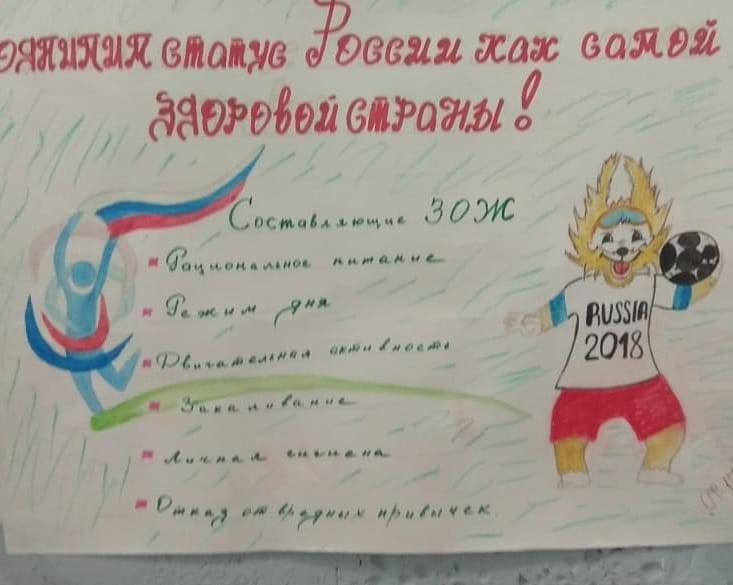 статус России как самой
здоровой страны!
Составляющие ЗОЖ
Рациональное питание
Режим дня
Двигательная активность
Закаливание
Личная гигиена
Отказ от вредных привычек.
RUSSIA
2018